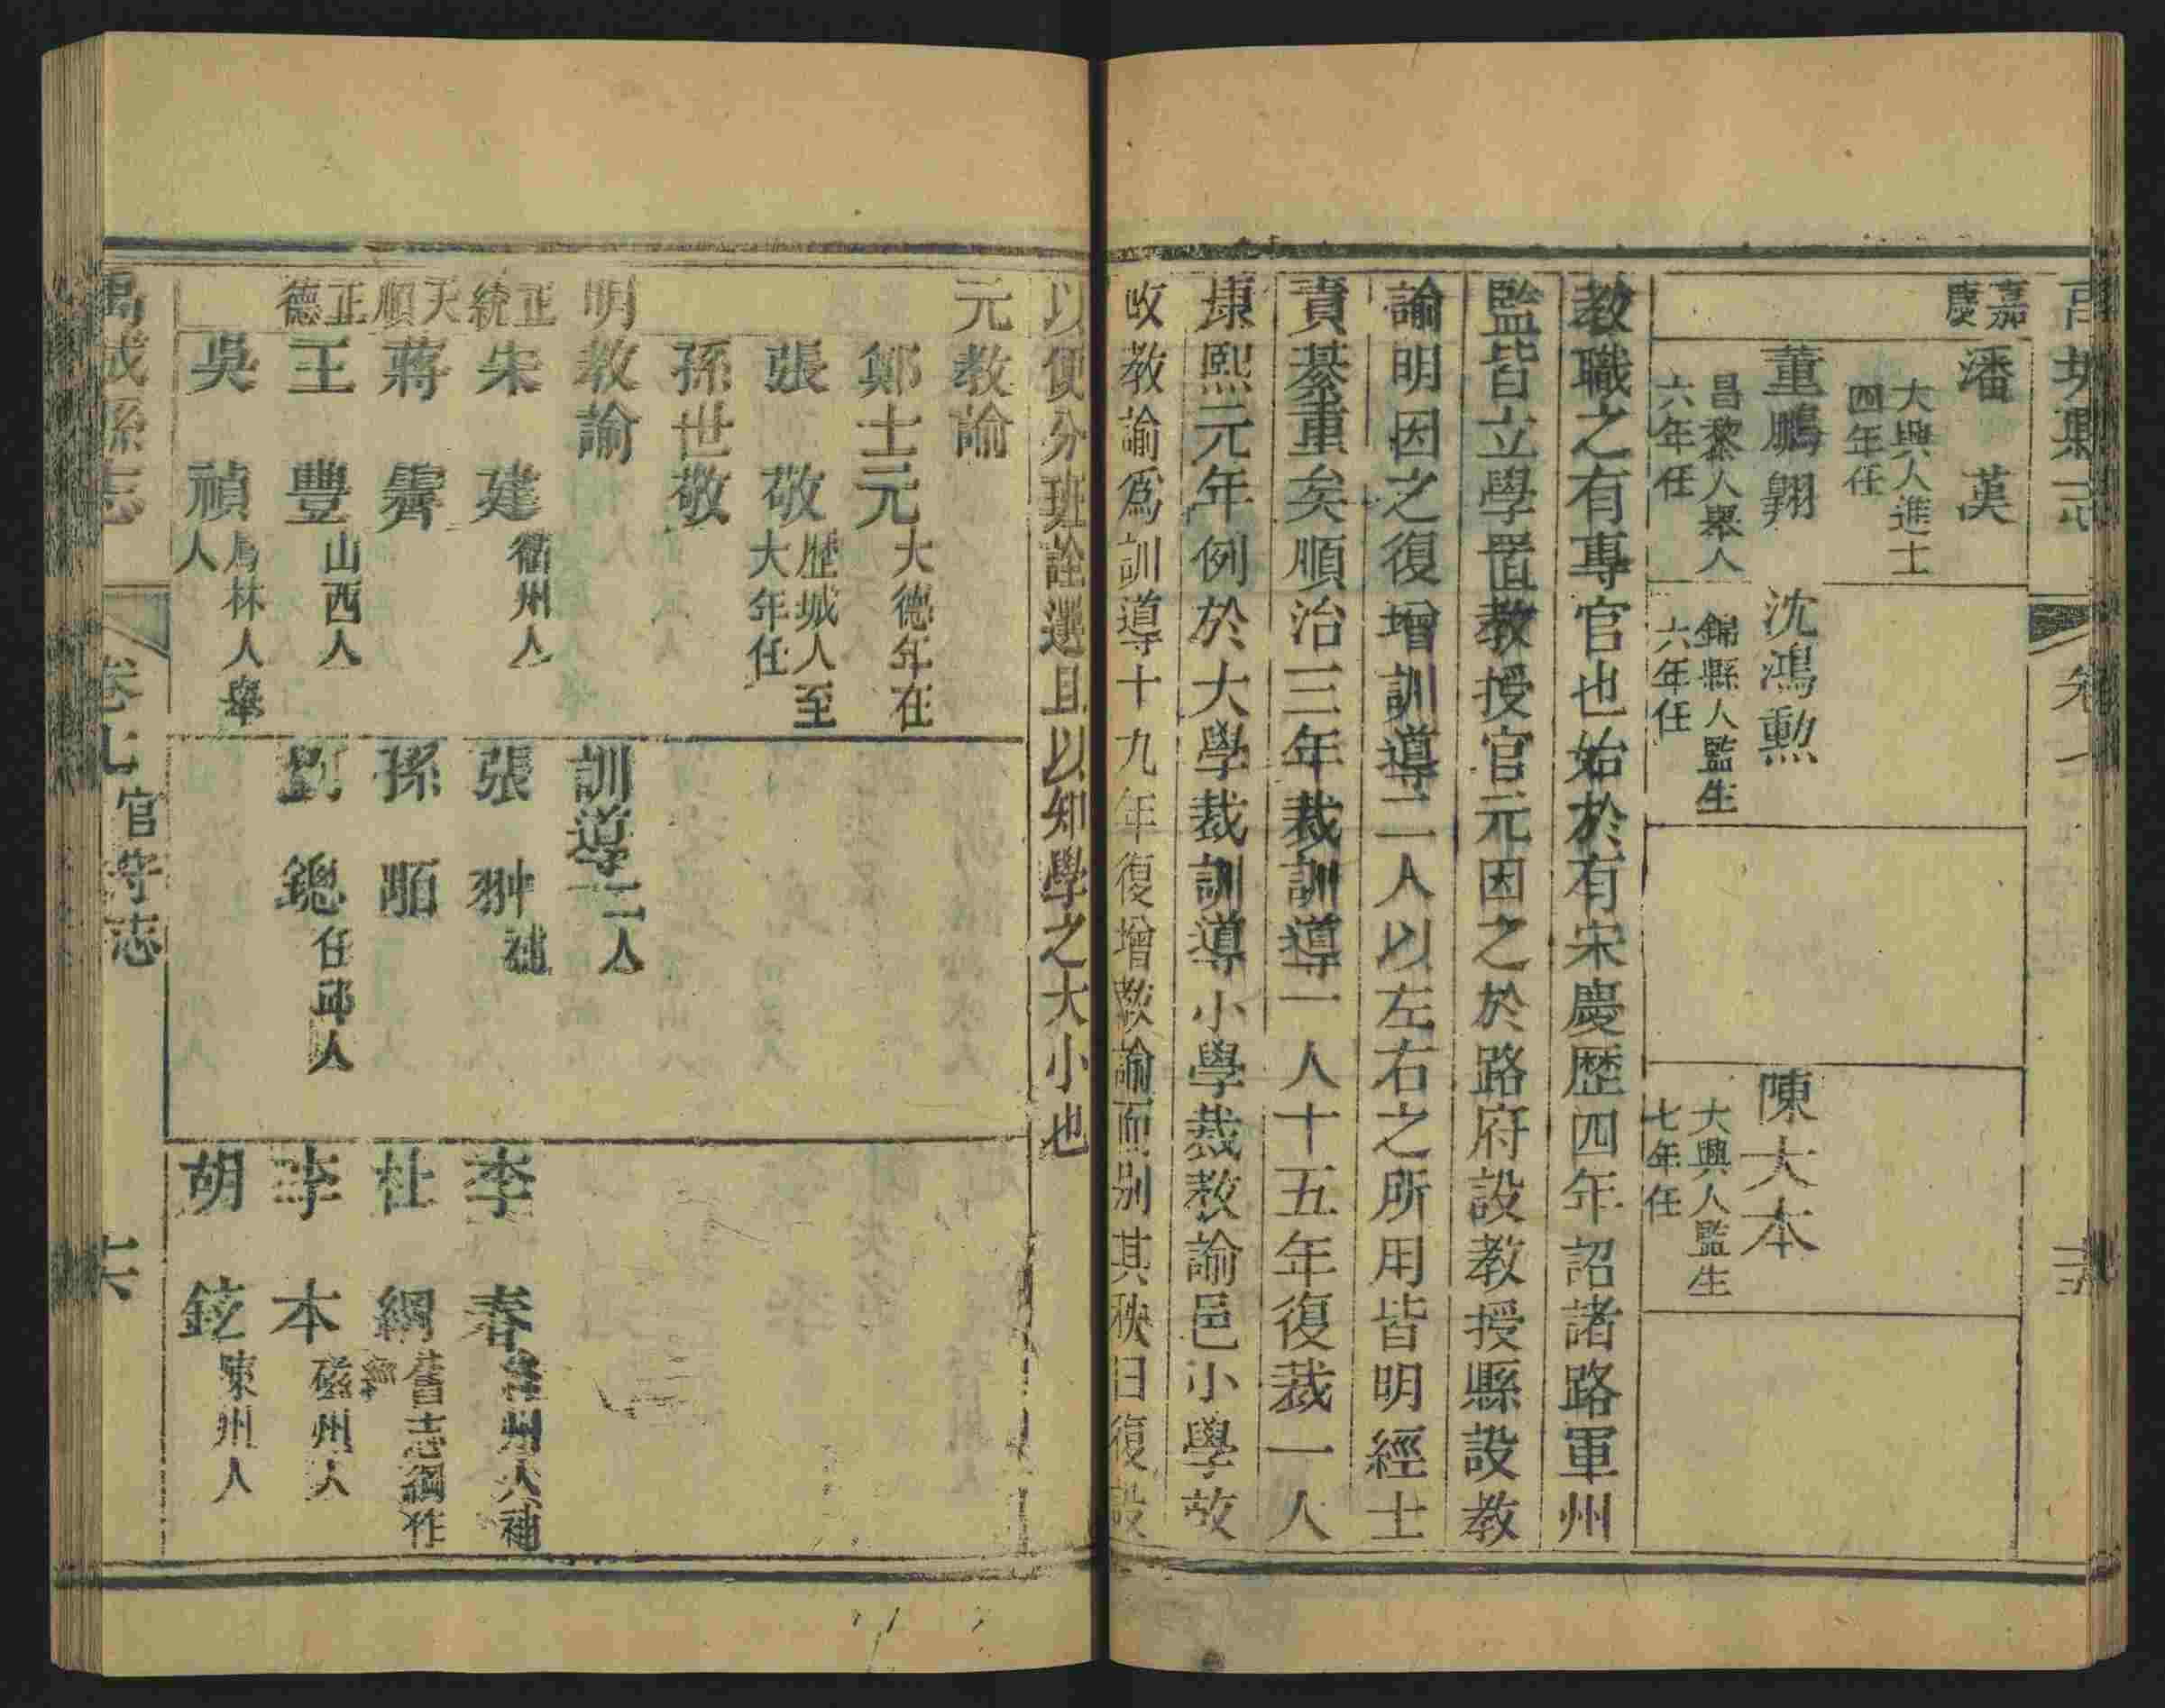 嘉慶
潘漢
大興人進士
四年任
董鵬翺
昌黎人舉人
六年任
沈鴻勲
錦縣人監生
六年任
陳大本
大興人監生
七年任
教職之有專官也始於有宋慶歷四年詔諸路軍州
監皆立學置教授官元因之於路府設教授縣設教
諭明因之復增訓導二人以左右之所用皆明經士
責綦重矣順治三年裁訓導一人十五年復裁一人
康熙元年例於大學裁訓導小學裁教諭邑小學故
改教諭爲訓導十九年復增教諭而別其秩曰復設
以便分班詮選且以知學之大小也
元教諭
鄭士元 大德年在
張敬 歷城人至
大年任
孫世敬
明教諭
訓導二人
正統
朱建 衛州人
張翀 補
李春 州人補
天順
蔣霽
孫
杜綱 舊志綱作
正德
王豐 山西人
劉鏓 任邱人
李本 磁州人
吳禎 人舉
人
胡鉉 陳州人
禹城縣志
卷七
官守志
十六